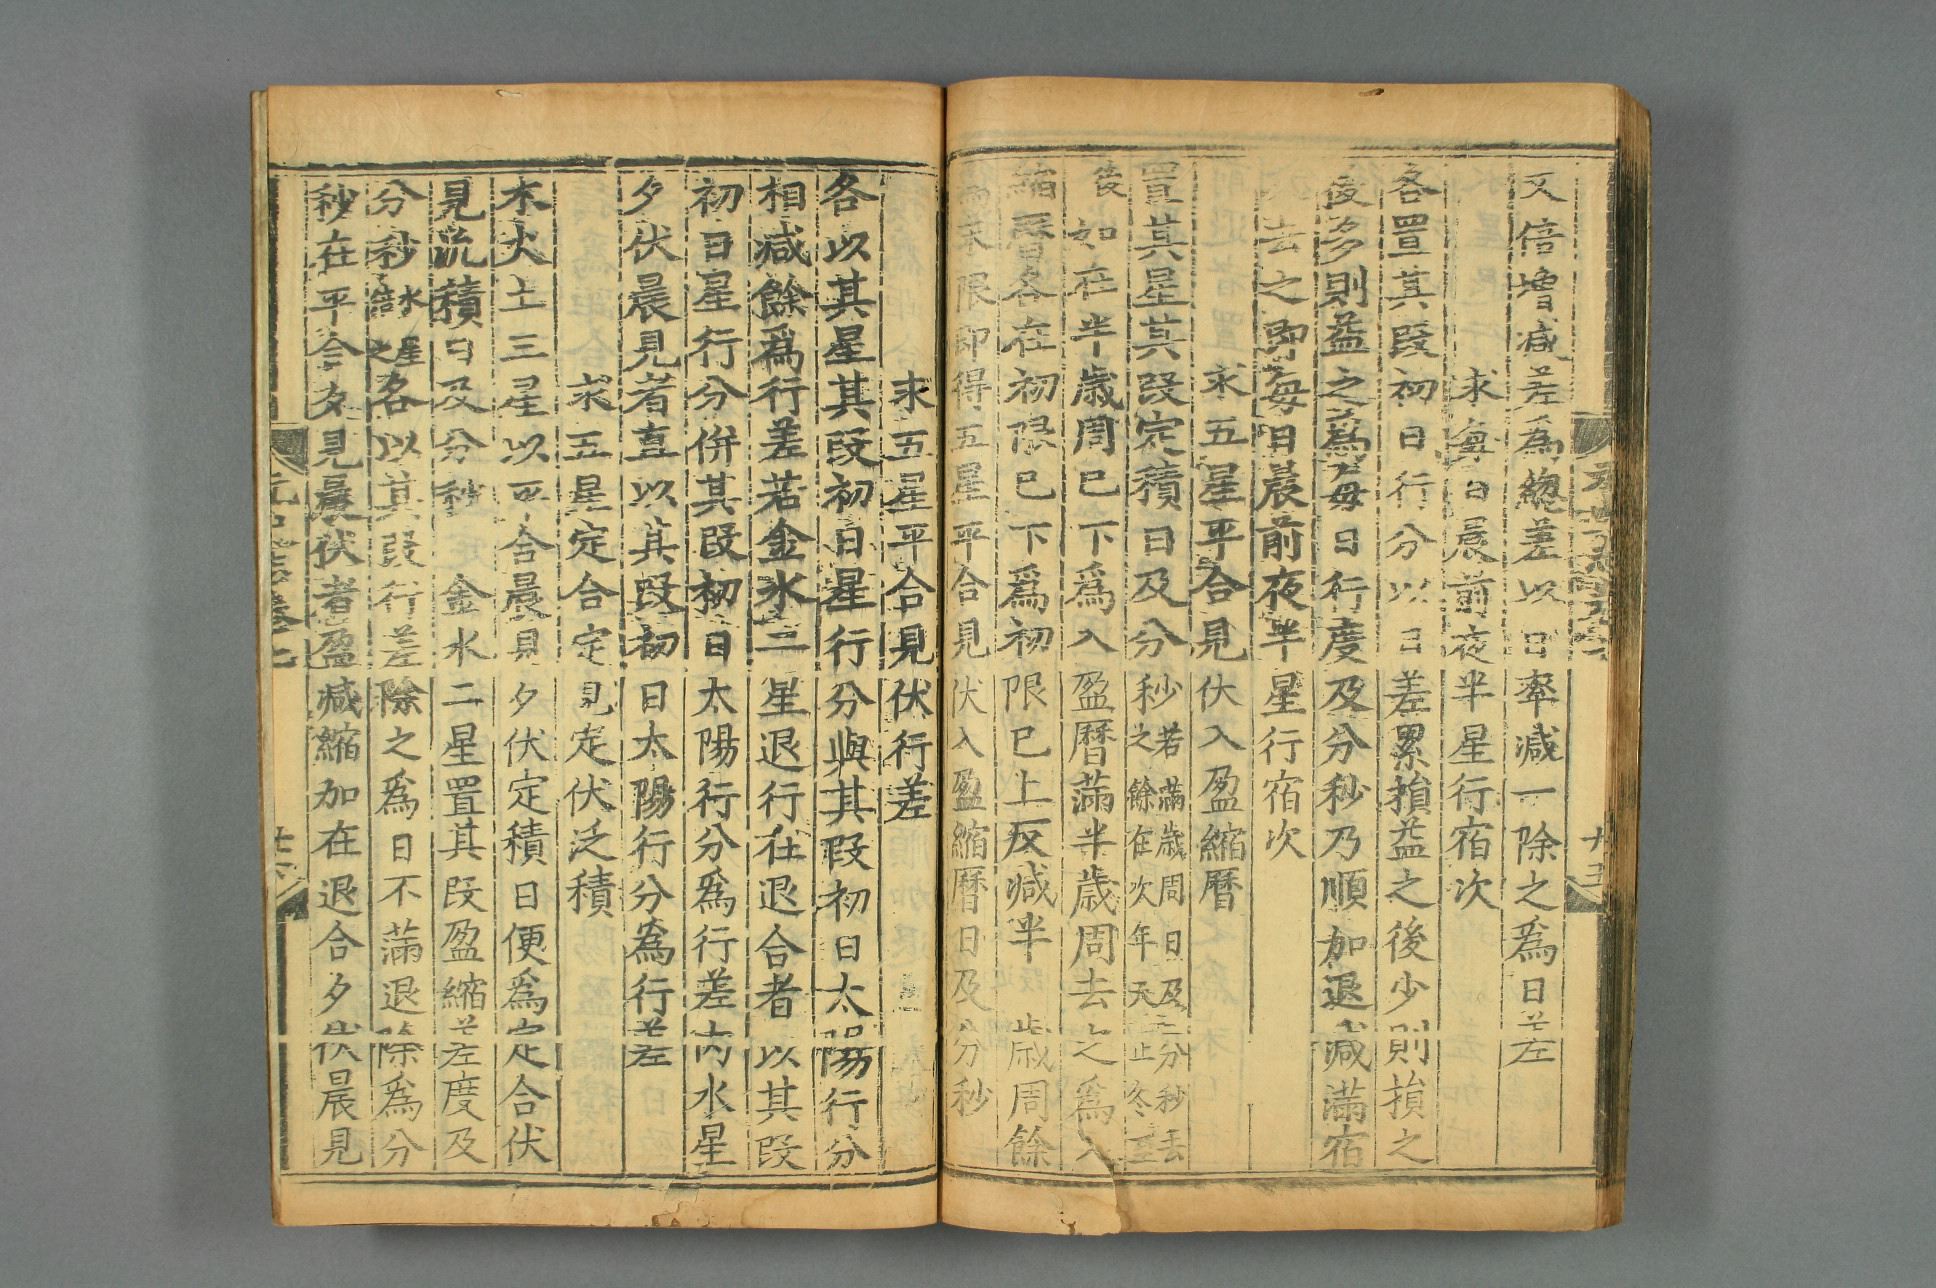 又倍增減差為總差以日率減一除之為日差
求每日晨前夜半星行宿次
各置其段初日行分以日差累損益之後少則損之
後多則益之為每日行度及分秒乃順加退減滿宿
去之即每日晨前夜半星行宿次
求五星平合見伏入盈縮曆
置其星其段定積日及分秒若滿歲周日及分秒去之餘在次年天正冬至
後如在半歲周已下為入盈曆滿半歲周去之為入
縮曆各在初限已下為初限已上反減半歲周餘
為末限即得五星平合見伏入盈縮曆日及分秒
求五星平合見伏行差
各以其星其段初日星行分與其段初日太陽行分
相減餘為行差若金水二星退行在退合者以其段
初日星行分併其段初日太陽行分為行差內水星
夕伏晨見者直以其段初日太陽行分為行差
求五星定合定見定伏泛積
木火土三星以平合晨見夕伏定積日便為定合伏
見泛積日及分秒 金水二星置其段盈縮差度及
分秒水星倍之各以其段行差除之為日不滿退除為分
秒在平合夕見晨伏者盈減縮加在退合夕伏晨見